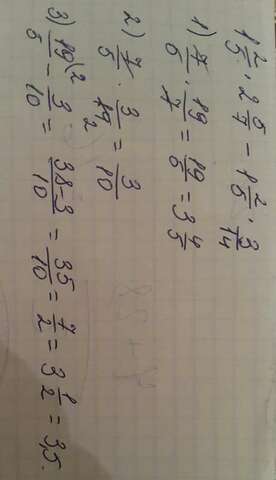 1 2/5 · 2 5/7 - 1 2/5 · 3/14
1) 7/5 · 19/7 = 19/5 = 3 4/5
2) 7/5 · 3/14 2 = 3/10
3) 19/5 (2 - 3/10 = 38-3/10 = 35/10 = 7/2 = 3 1/2 = 3,5.